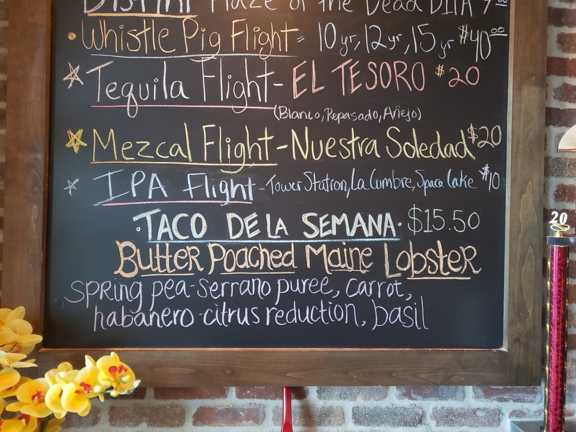 Haze of the Dead DIPA
Whistle Pig Flight = 10yr, 12yr, 15yr $40.00
Tequila Flight - EL TESORO $20
(Blanco, Repasado, Añejo)
Mezcal Flight - Nuestra Soledad $20
IPA Flight - Tower Station, La Cumbre, Space Cake $10
·TACO DE LA SEMANA· $15.50
Butter Poached Maine Lobster
spring pea-serrano puree, carrot,
habanero-citrus reduction, basil
20